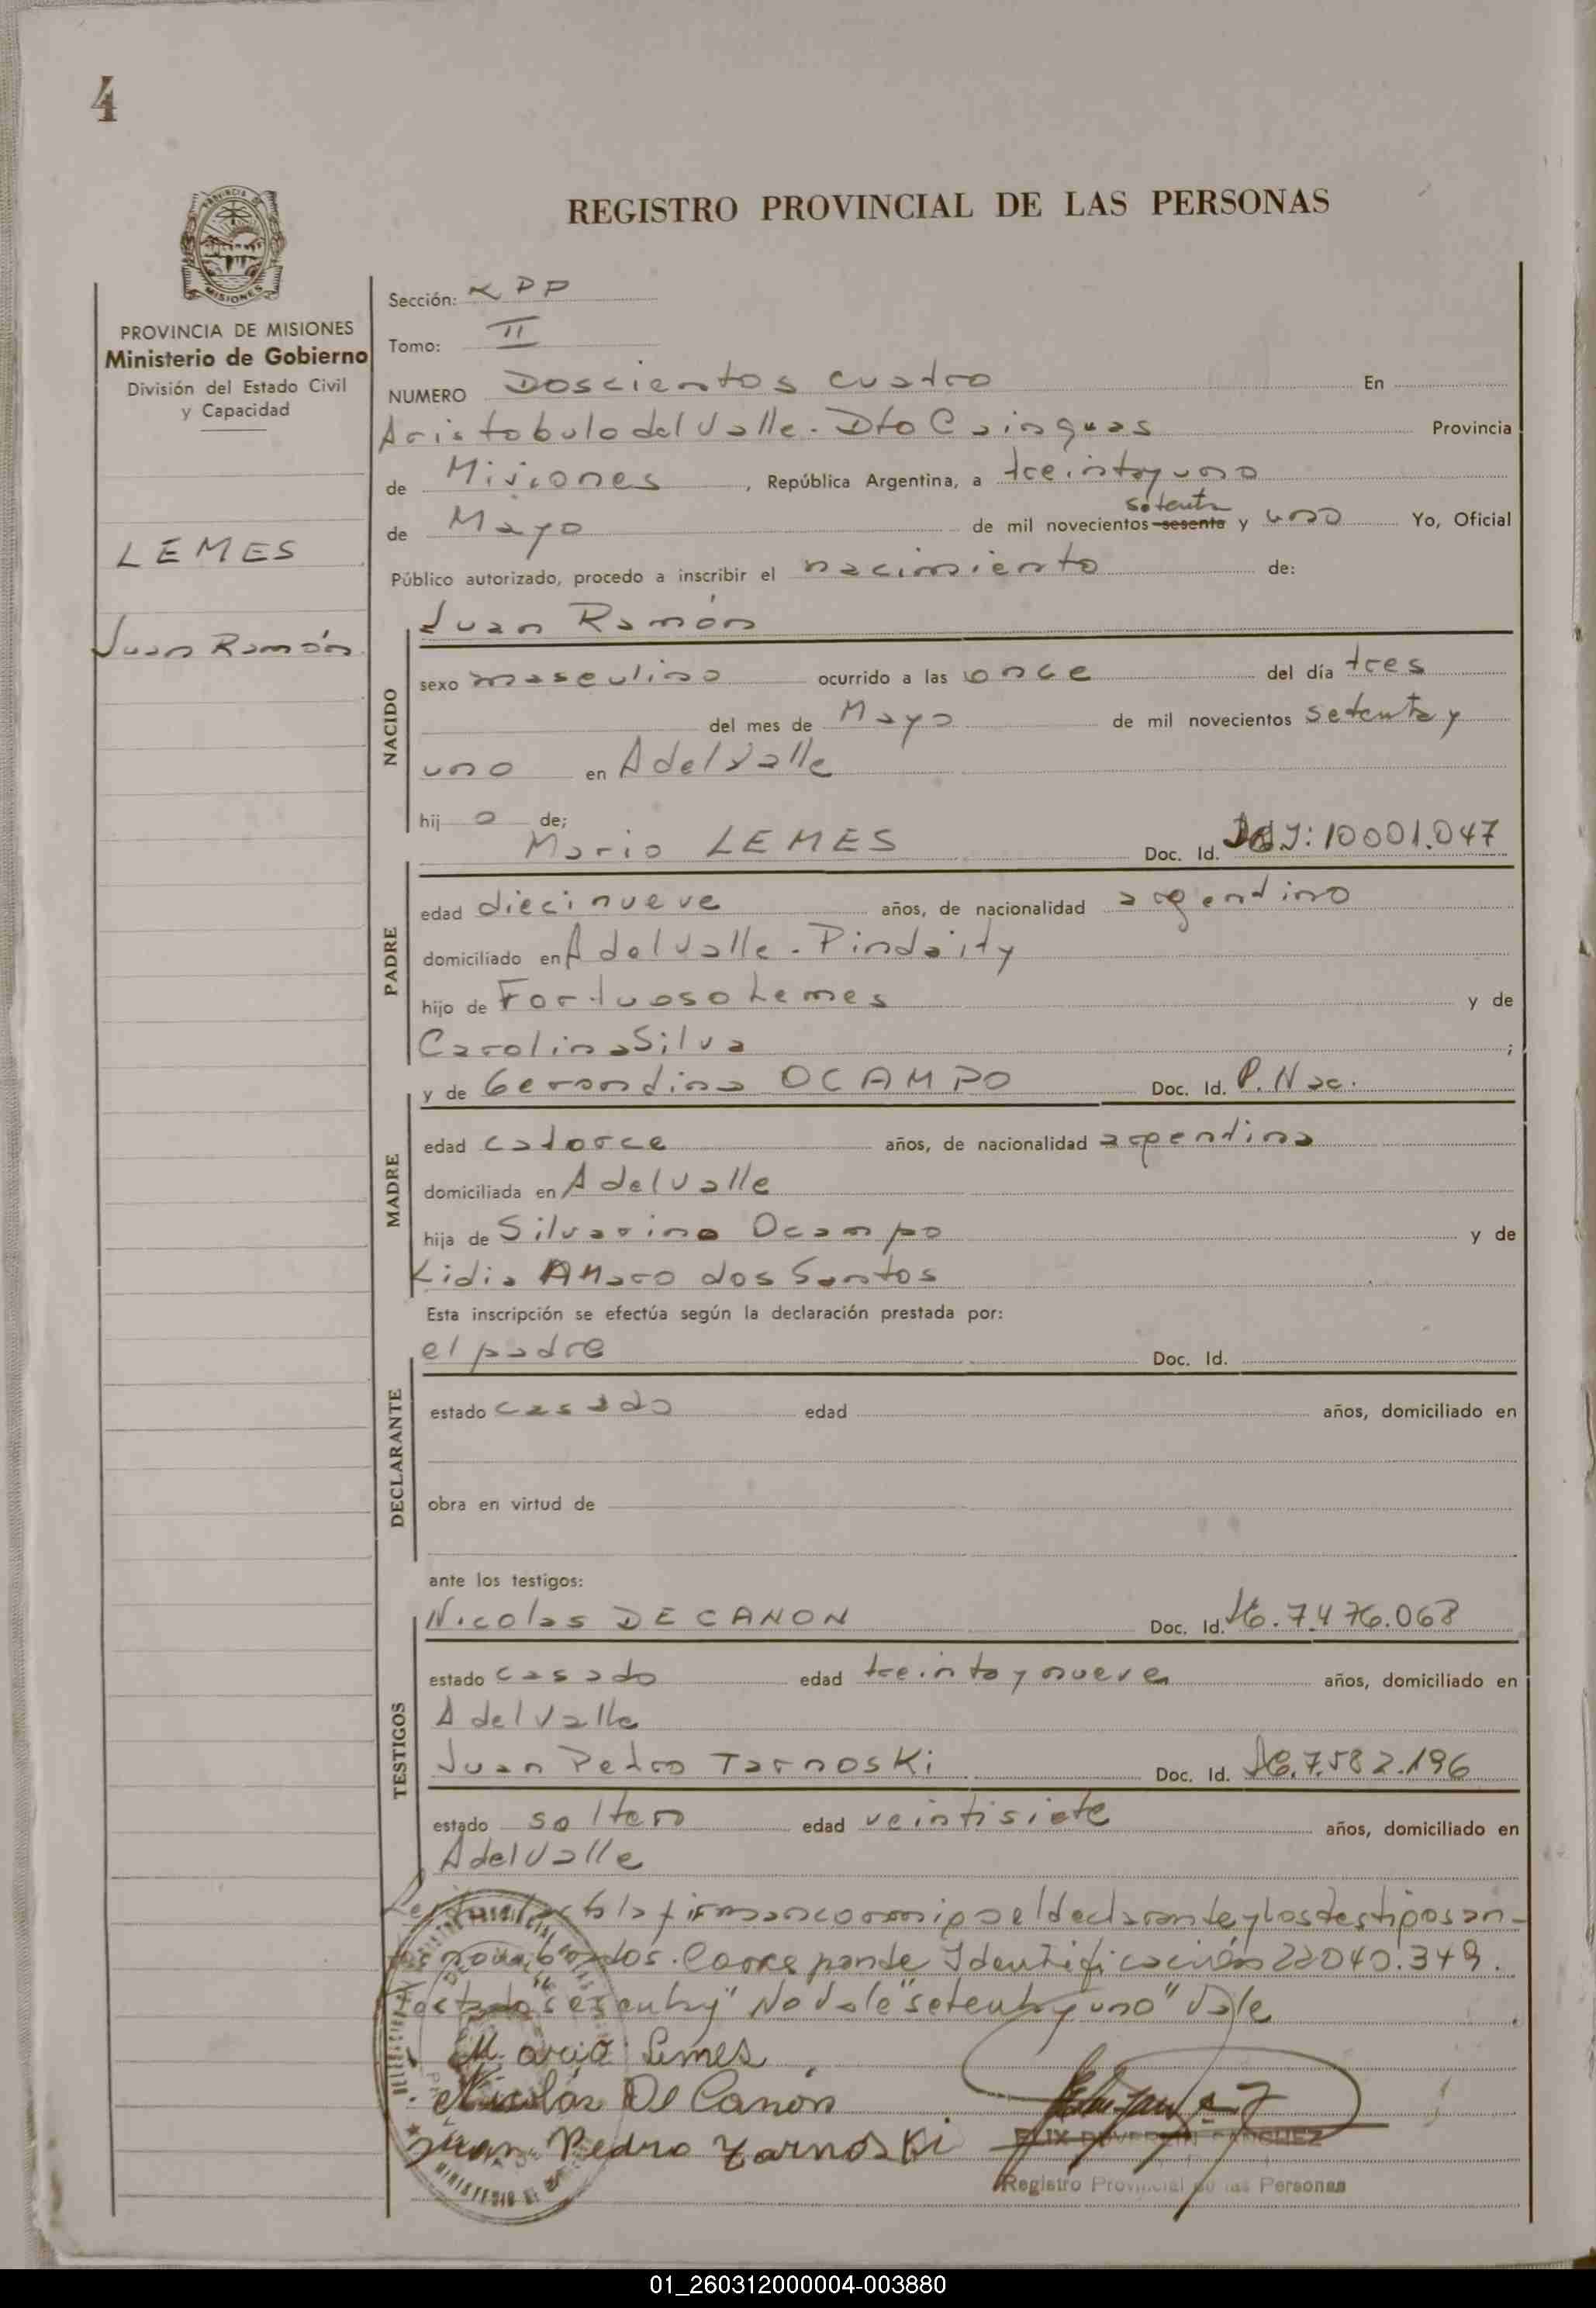 4
REGISTRO PROVINCIAL DE LAS PERSONAS
PROVINCIA DE MISIONES
Ministerio de Gobierno
División del Estado Civil
y Capacidad
LEMES
Juan Ramón
Sección:
Tomo: II
NUMERO Doscientos cuatro En
Aristobulo del Valle - Dto Cainguas Provincia
de Misiones, República Argentina, a treinta y uno
setenta
de Mayo de mil novecientos sesenta y uno Yo, Oficial
Público autorizado, procedo a inscribir el nacimiento de:
Juan Ramón
NACIDO
sexo masculino ocurrido a las once del día tres
del mes de Mayo de mil novecientos setenta y
uno en A del Valle
hijo de;
Mario LEMES Doc. Id. 10001.047
PADRE
edad diecinueve años, de nacionalidad argentino
domiciliado en A del Valle - Pindaity
hijo de Fortuoso Lemes y de
Carolina Silva ;
y de Gerondina OCAMPO Doc. Id. P. Nac.
MADRE
edad catorce años, de nacionalidad argentina
domiciliada en A del Valle
hija de Silvarino Ocampo y de
Lidia AMaro dos Santos
Esta inscripción se efectúa según la declaración prestada por:
el padre Doc. Id.
DECLARANTE
estado casado edad años, domiciliado en
obra en virtud de
ante los testigos:
Nicolas DE CANON Doc. Id. 7.476.068
TESTIGOS
estado casado edad treinta y nueve años, domiciliado en
A del Valle
Juan Pedro Tarnoski Doc. Id. 7.582.196
estado soltero edad veintisiete años, domiciliado en
A del Valle
Leida el acta la firman conmigo el declarante y los testigos an-
tes nombrados. Corresponde Identificación 22040.349.
Testado "sesenta y" No Vale "setenta y uno" Vale
Mario Lemes
Nicolás De Canón
Juan Pedro Tarnoski
SANCHEZ
Registro Provincial de las Personas
01_260312000004-003880